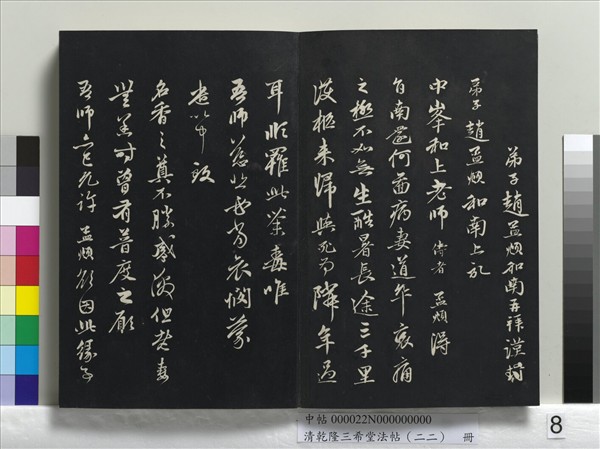 弟子趙孟頫和南再拜謹封
弟子趙孟頫和南上記
中峯和上老師侍者孟頫得
旨南還何啚病妻道卒哀痛
之極不如無生酷暑長途三千里
護柩来歸與死為隣年過
耳順罹此荼毒唯
吾師慈悲哀憫蒙
遣以中致
名香之奠不勝感激但老妻
無恙時曾有普度之願
吾師亦已允許孟頫欲因此緣
中帖 000022N000000000
清乾隆三希堂法帖(二二) 冊
8